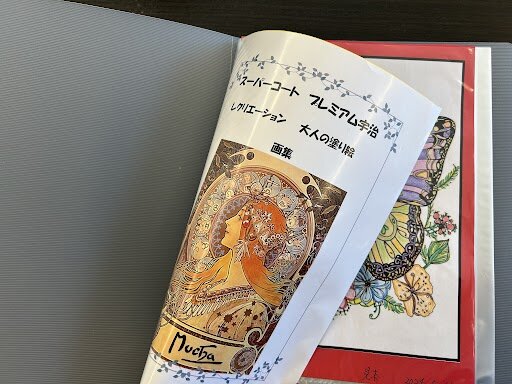 スーパーコート プレミアム宇治
レクリエーション 大人の塗り絵
画集
Mucha